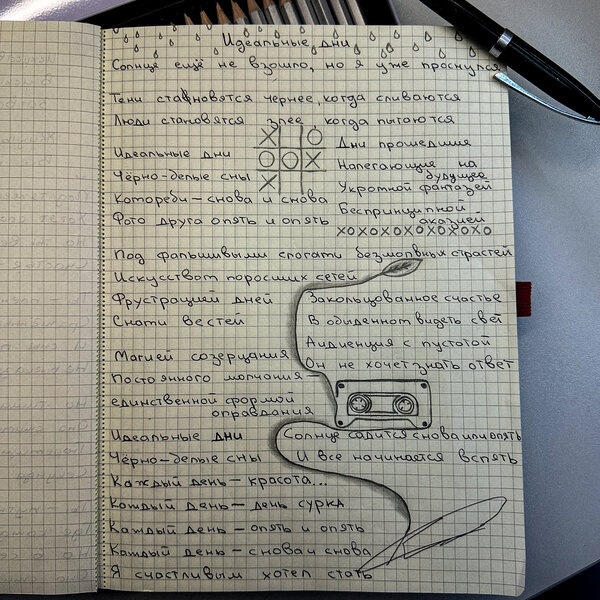 Идеальные дни
Солнце ещё не взошло, но я уже проснулся
Тени становятся чернее, когда сливаются
Люди становятся злее, когда пытаются
Идеальные дни
Чёрно-белые сны
Комореби – снова и снова
Фото друга опять и опять
Дни прошедшие
Налегающие на
будущее
Укромной фантазей
Беспринципной
оказией
Под фальшивыми слогами безмолвных страстей
Искусством поросших сетей
Фрустрацией дней
Снами вестей
Магией созерцания
Постоянного молчания –
единственной формой
оправдания
Закольцованное счастье
В обыденном видеть свет
Аудиенция с пустотой
Он не хочет знать ответ
Идеальные дни
Чёрно-белые сны
Солнце садится снова или опять
И все начинается вспять
Каждый день – красота...
Каждый день – день сурка
Каждый день – опять и опять
Каждый день – снова и снова
Я счастливым хотел стать